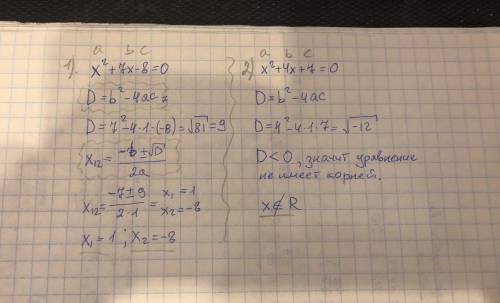 a b c
1). x²+7x-8=0
D=b²-4ac =
D=7²-4·1·(-8)=√81=9
x₁₂= (-b±√D)/2a
x₁₂= (-7±9)/(2·1) = x₁=1 x₂=-8
x₁=1 ; x₂=-8
a b c
2) x²+4x+7=0
D=b²-4ac
D=4²-4·1·7=√-12
D<0, значит уравнение
не имеет корней.
x∉R